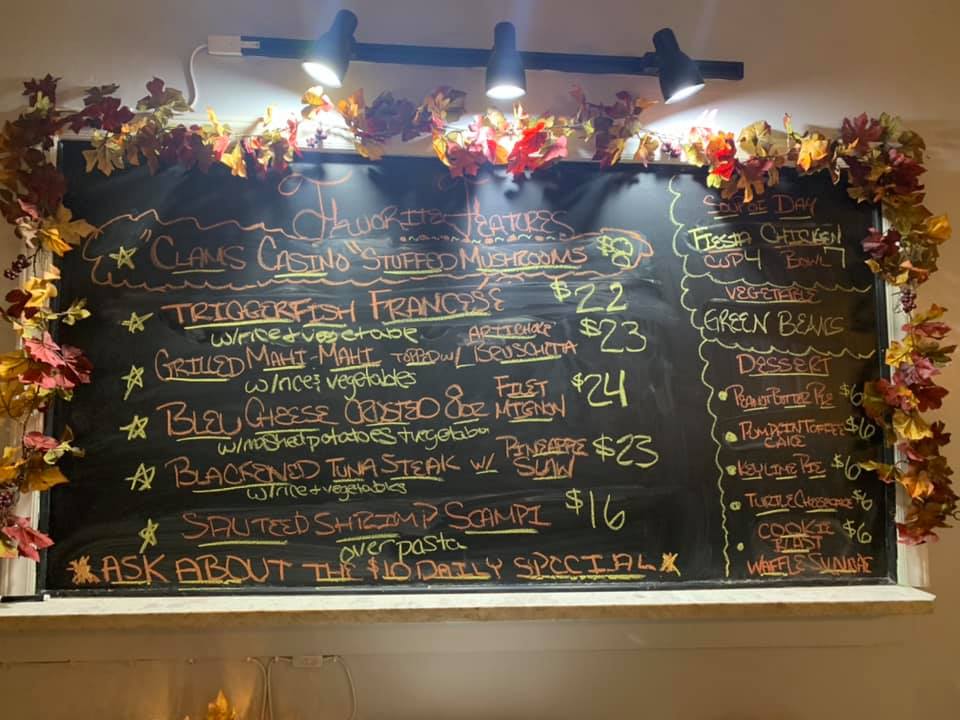 Favorite Features
"Clams Casino" Stuffed Mushrooms $8
Triggerfish Francese $22
w/rice + vegetable
Grilled Mahi-Mahi topped w/ Artichoke Bruschetta $23
w/rice & vegetables
Bleu Cheese Crusted 8oz Filet Mignon $24
w/mashed potatoes + vegetable
Blackened Tuna Steak w/ Pineapple Slaw $23
w/rice + vegetables
Sauteed Shrimp Scampi $16
over pasta
Ask About the $10 Daily Special
Fiesta Chicken
Cup 4 Bowl 7
Vegetable
Green Beans
Dessert
Peanut Butter Pie $6
Pumpkin Toffee Cake $6
Key Lime Pie $6
Turtle Cheesecake $6
Cookie $6
Waffle Sundae